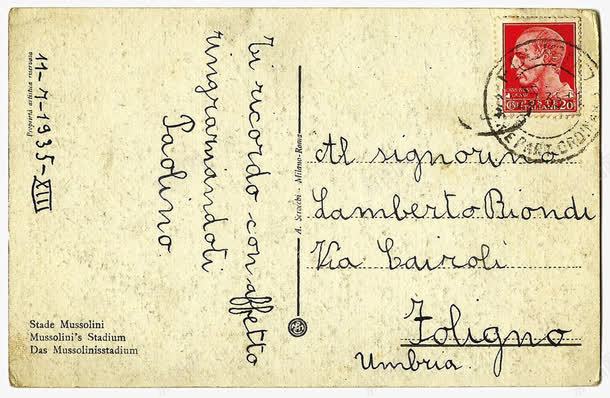 11-7-1935-XIII
Proprietà artistica riservata
Ti ricordo con affetto
ringraziandoti
Paolino.
A. Scrocchi - Milano-Roma
Al signorino
Lamberto Biondi
Via Cairoli
Foligno
Umbria.
REPART. ORDINAR
20
Stade Mussolini
Mussolini's Stadium
Das Mussolinisstadium